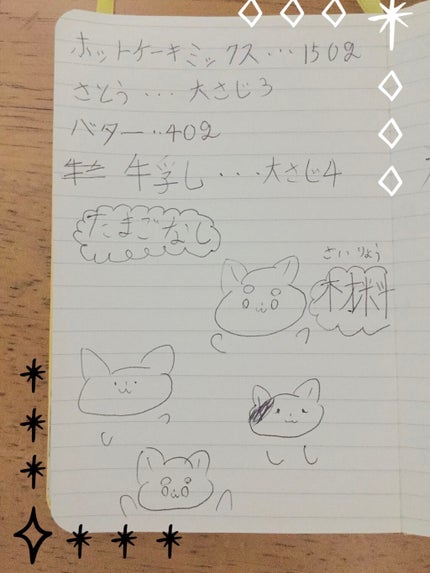 ホットケーキミックス・・・150g
さとう・・・大さじ3
バター・・40g
牛乳・・・大さじ4
たまごなし
さいりょう
材料